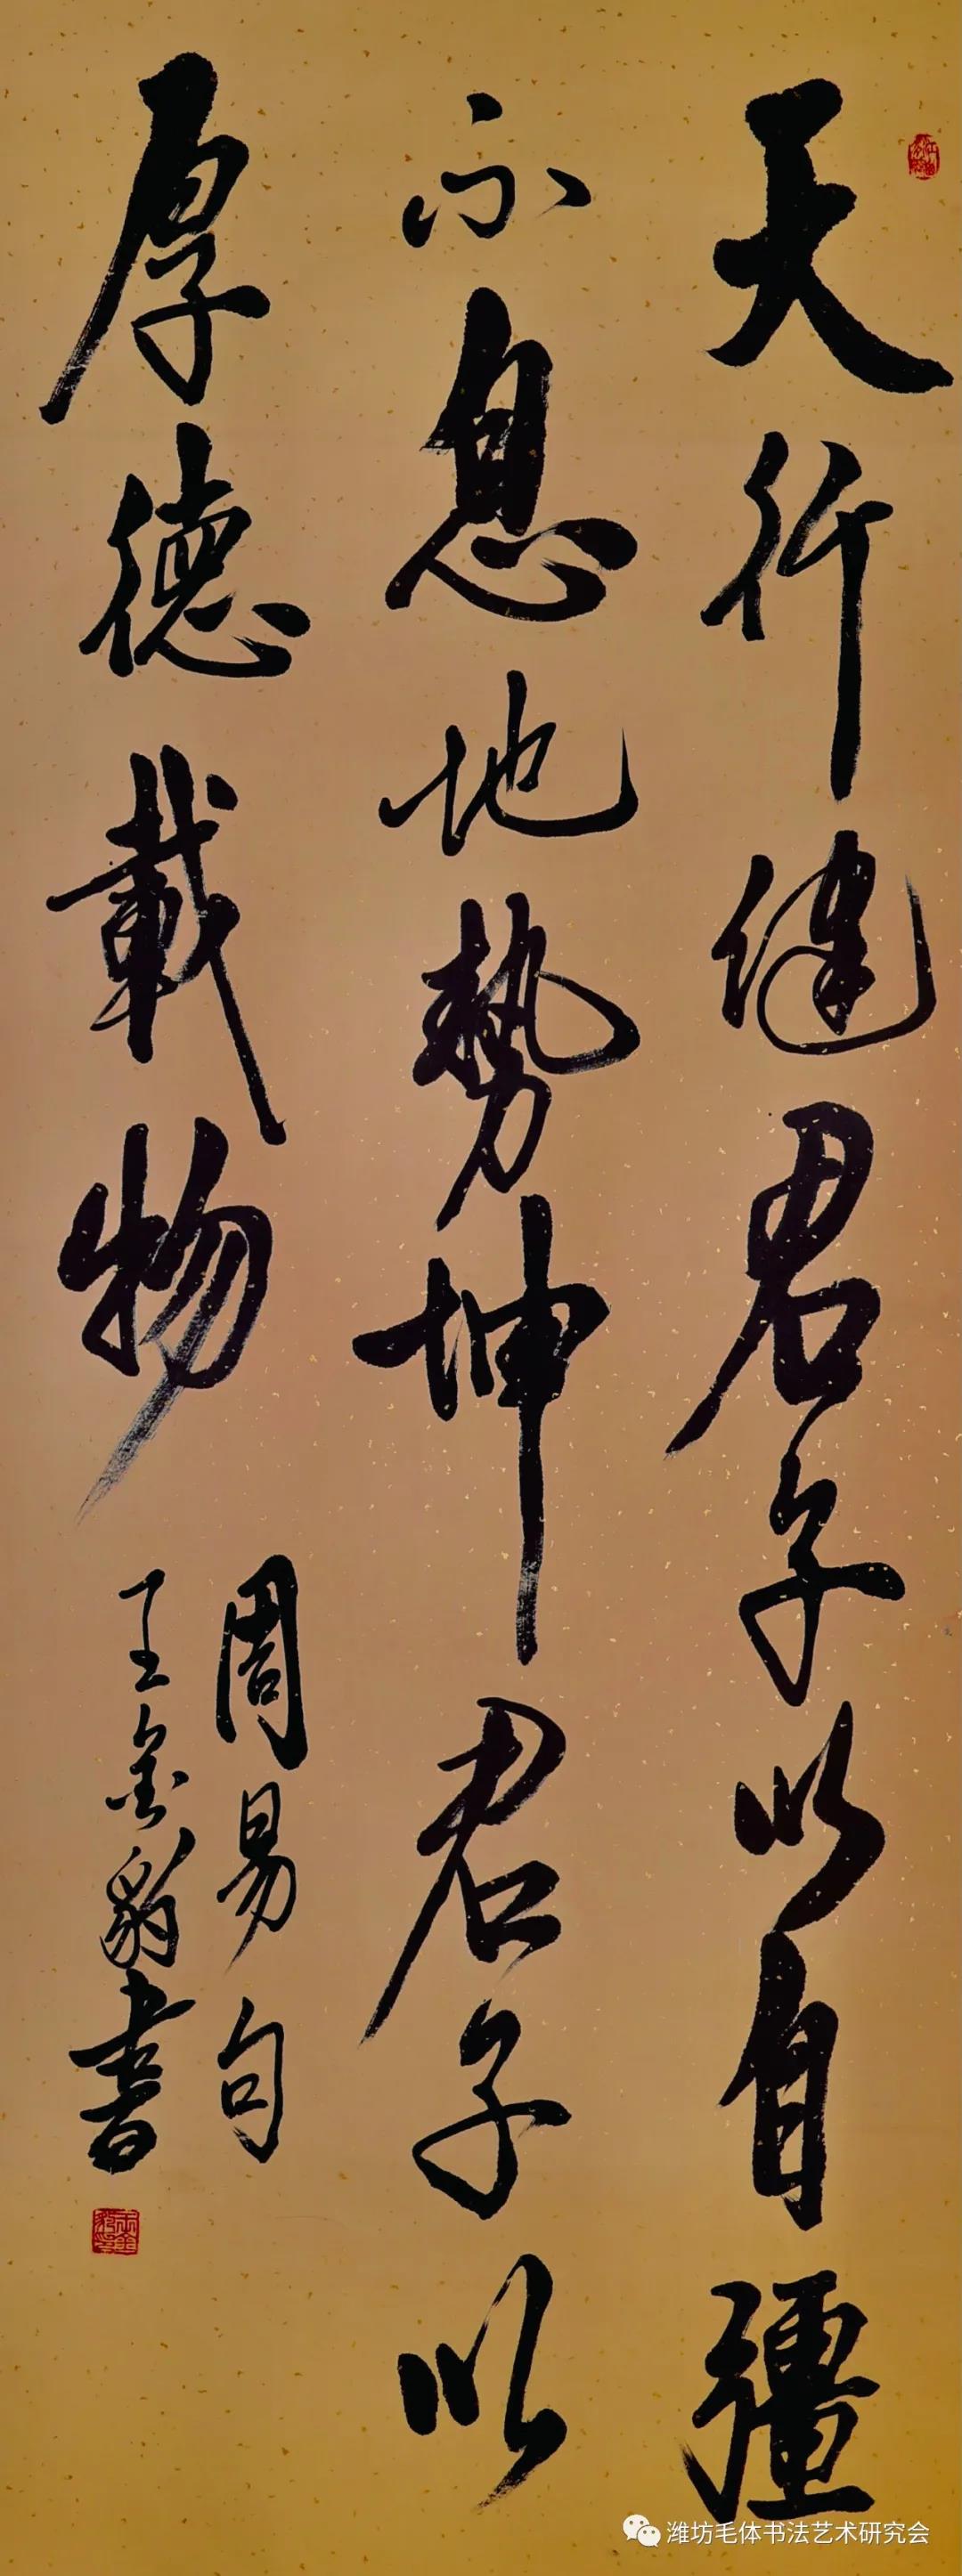 天行健君子以自彊
不息地勢坤君子以
厚德載物
周易句
王金豹書
潍坊毛体书法艺术研究会